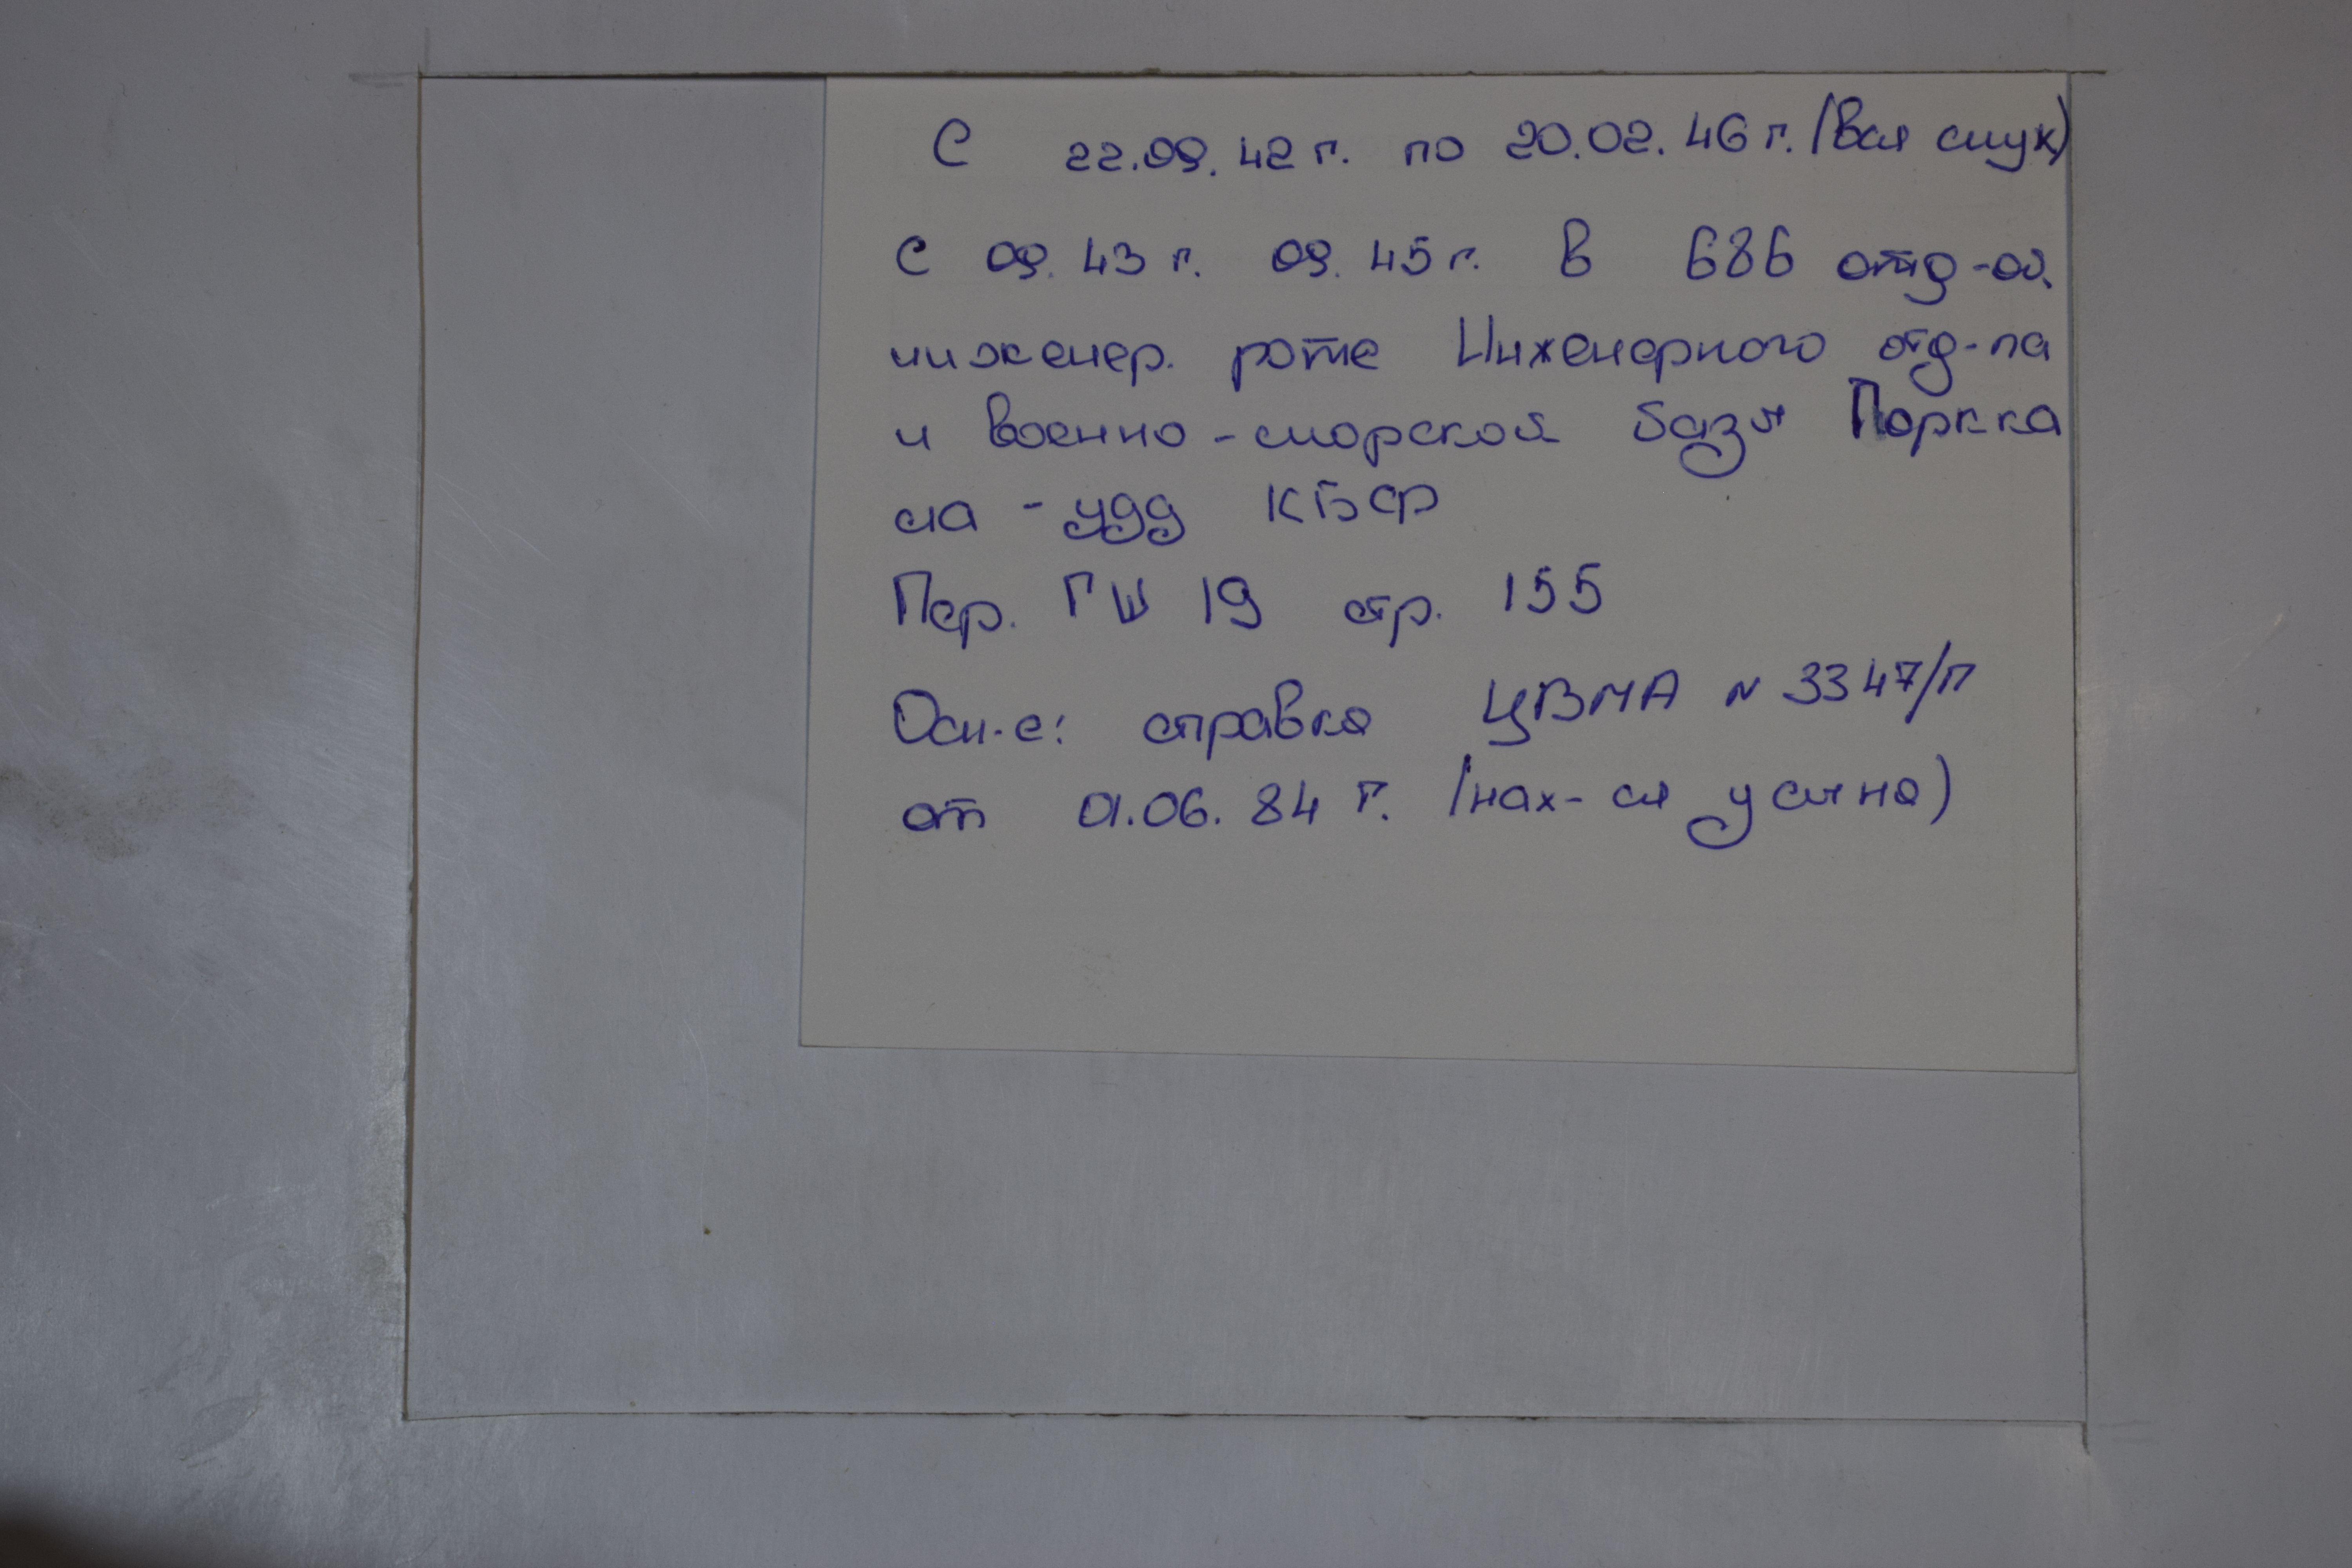 С 22.09.42 г. по 20.02.46 г. (вся служ)
С 09.43 г. 09.45 г. в 686 отд-ой
инженер. роте Инженерного отд-ла
и военно-морской базы Поркка
ла-удд КБФ
Пер. ГШ 19 стр. 155
Осн-е: справка ЦВМА № 3347/П
от 01.06.84 г. (нах-ся у сына)